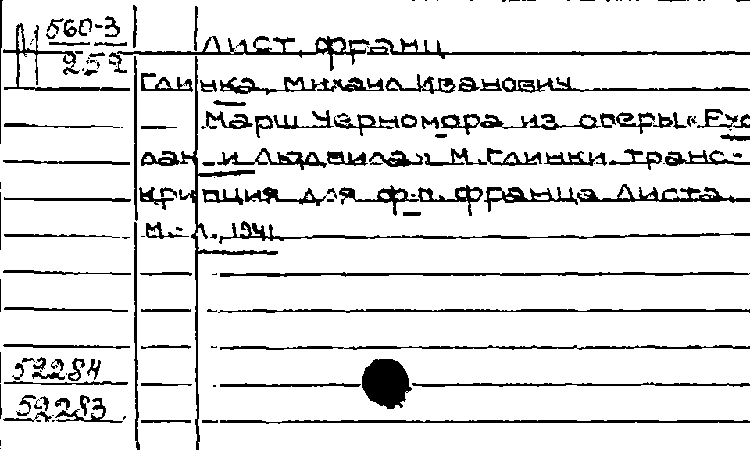 М 560-3
252
Лист, Франц
Глинка, Михаил Иванович
— Марш Черномора из оперы „Рус
лан и Людмила" М. Глинки. Транс-
крипция для ф.-п. Франца Листа.
М.-Л., 1941.
52284
52283